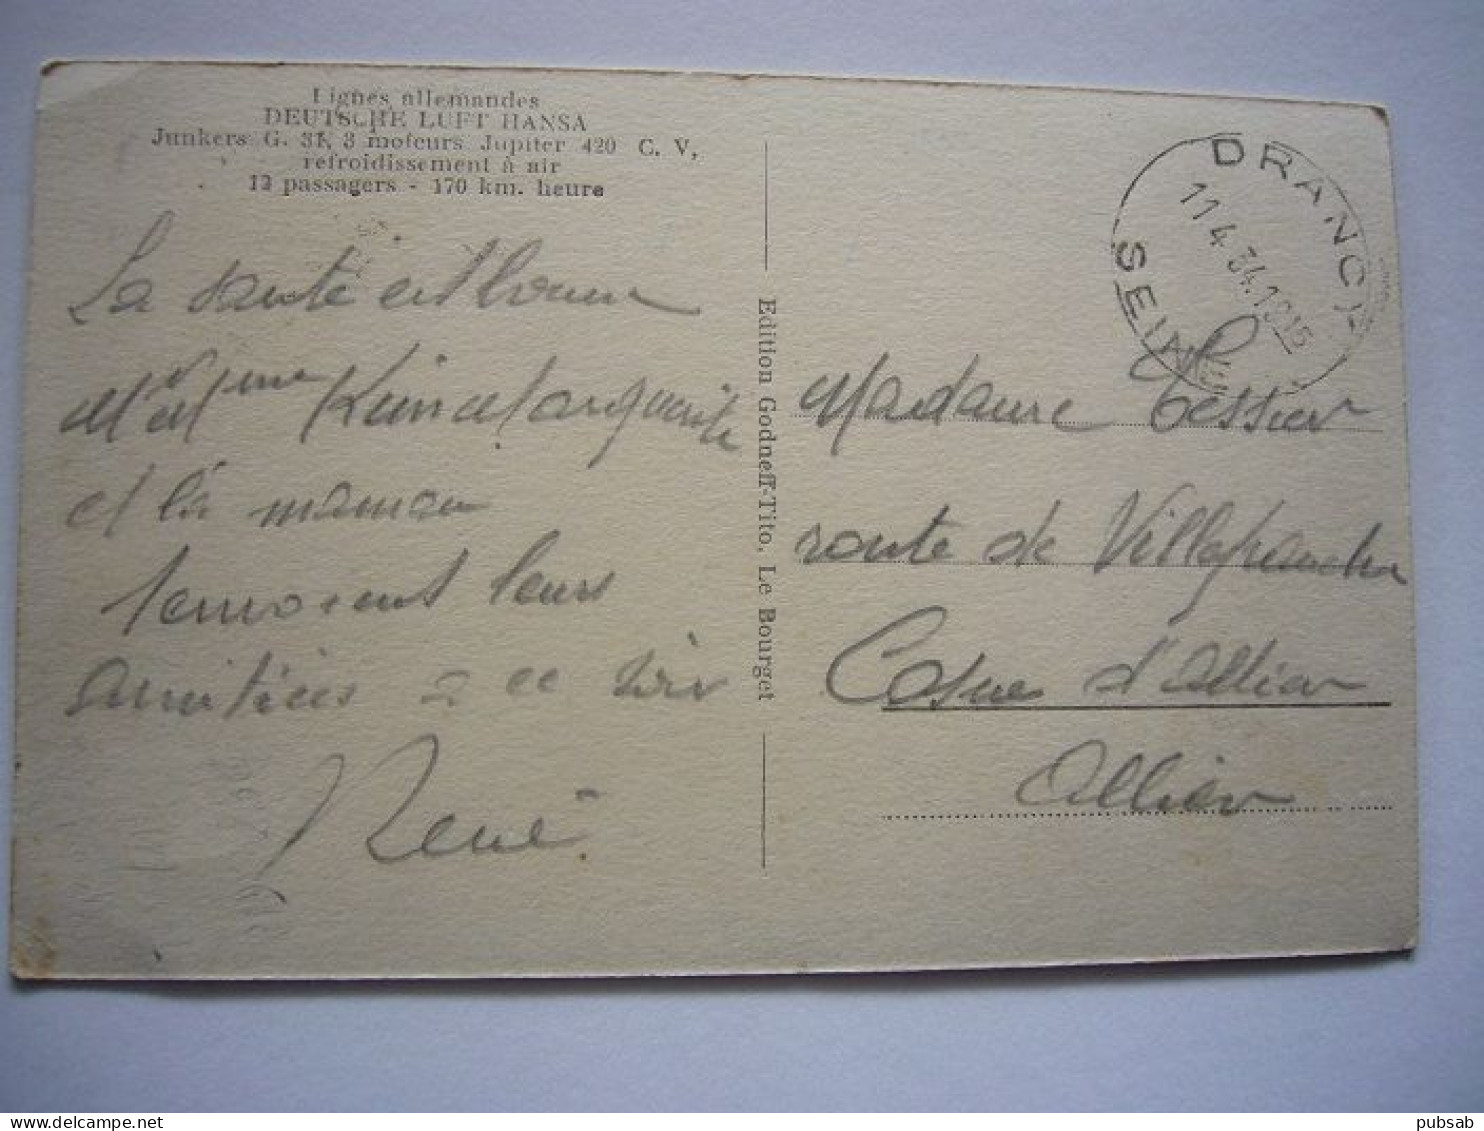 Lignes allemandes
DEUTSCHE LUFT HANSA
Junkers G. 31, 3 moteurs Jupiter 420 C. V,
refroidissement à air
12 passagers - 170 km. heure
La santé est bonne
Mr et Mme Marguerite
et la maman
leurs
amitiés a ce soir
René
Edition Godneff-Tito, Le Bourget
DRANCY
11 4 34.1915
SEINE
Madame Tessier
route de Villefranche
Cosne d'Allier
Allier
pubsab